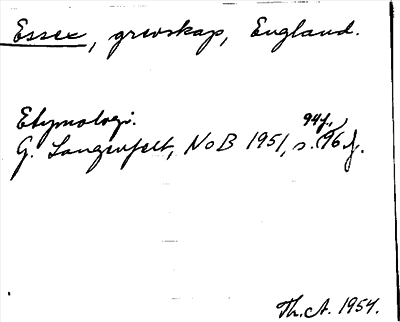 Essex, grevskap, England.
Etymologi.
94f.,
G. Langenfelt, NoB 1951, s. 96 f.
Th. A. 1954.